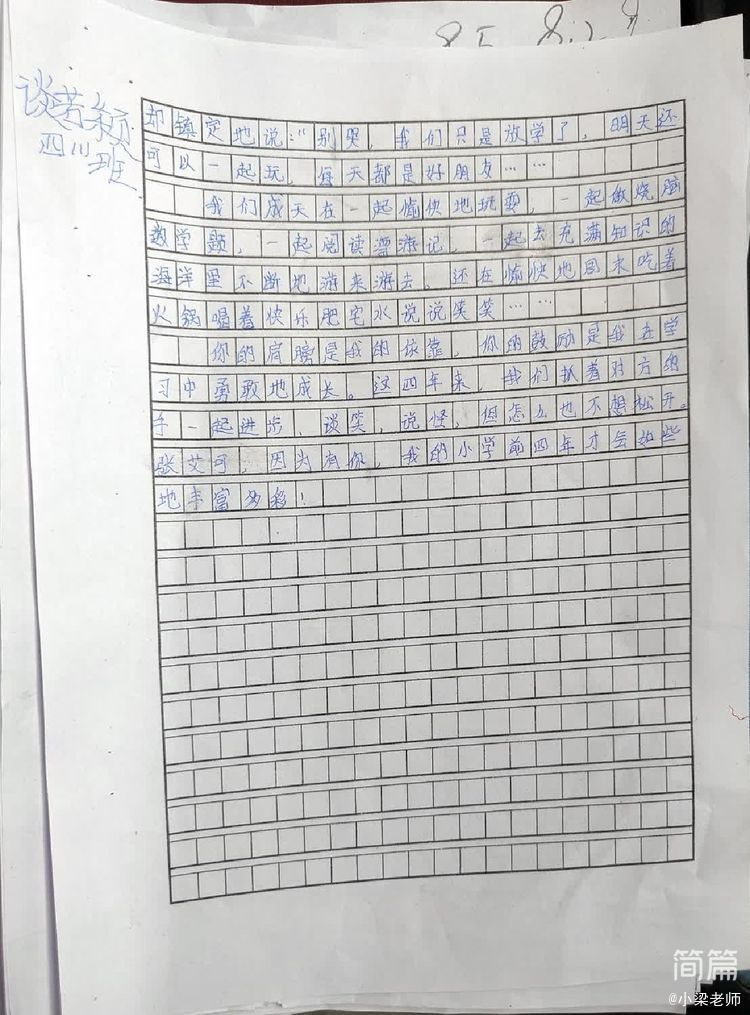 谈若颖
四川班
却镇定地说:“别哭,我们只是放学了,明天还
可以一起玩,每天都是好朋友……
我们成天在一起愉快地玩耍,一起做烧脑
数学题,一起阅读漂游记,一起去充满知识的
海洋里不断地游来游去。还在愉快地周末吃着
火锅喝着快乐肥宅水说说笑笑……
你的肩膀是我的依靠,你的鼓励是我在学
习中勇敢地成长。这四年来,我们扒着对方的
手一起进步、谈笑,说怪,但怎么也不想松开。
张艾可,因为有你,我的小学前四年才会如些
地丰富多彩!
简篇
@小梁老师